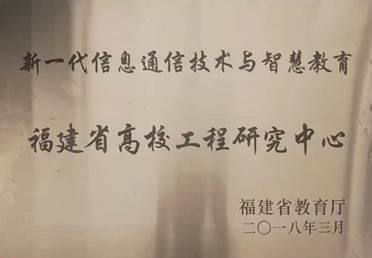 新一代信息通信技术与智慧教育
福建省高校工程研究中心
福建省教育厅
二〇一八年三月